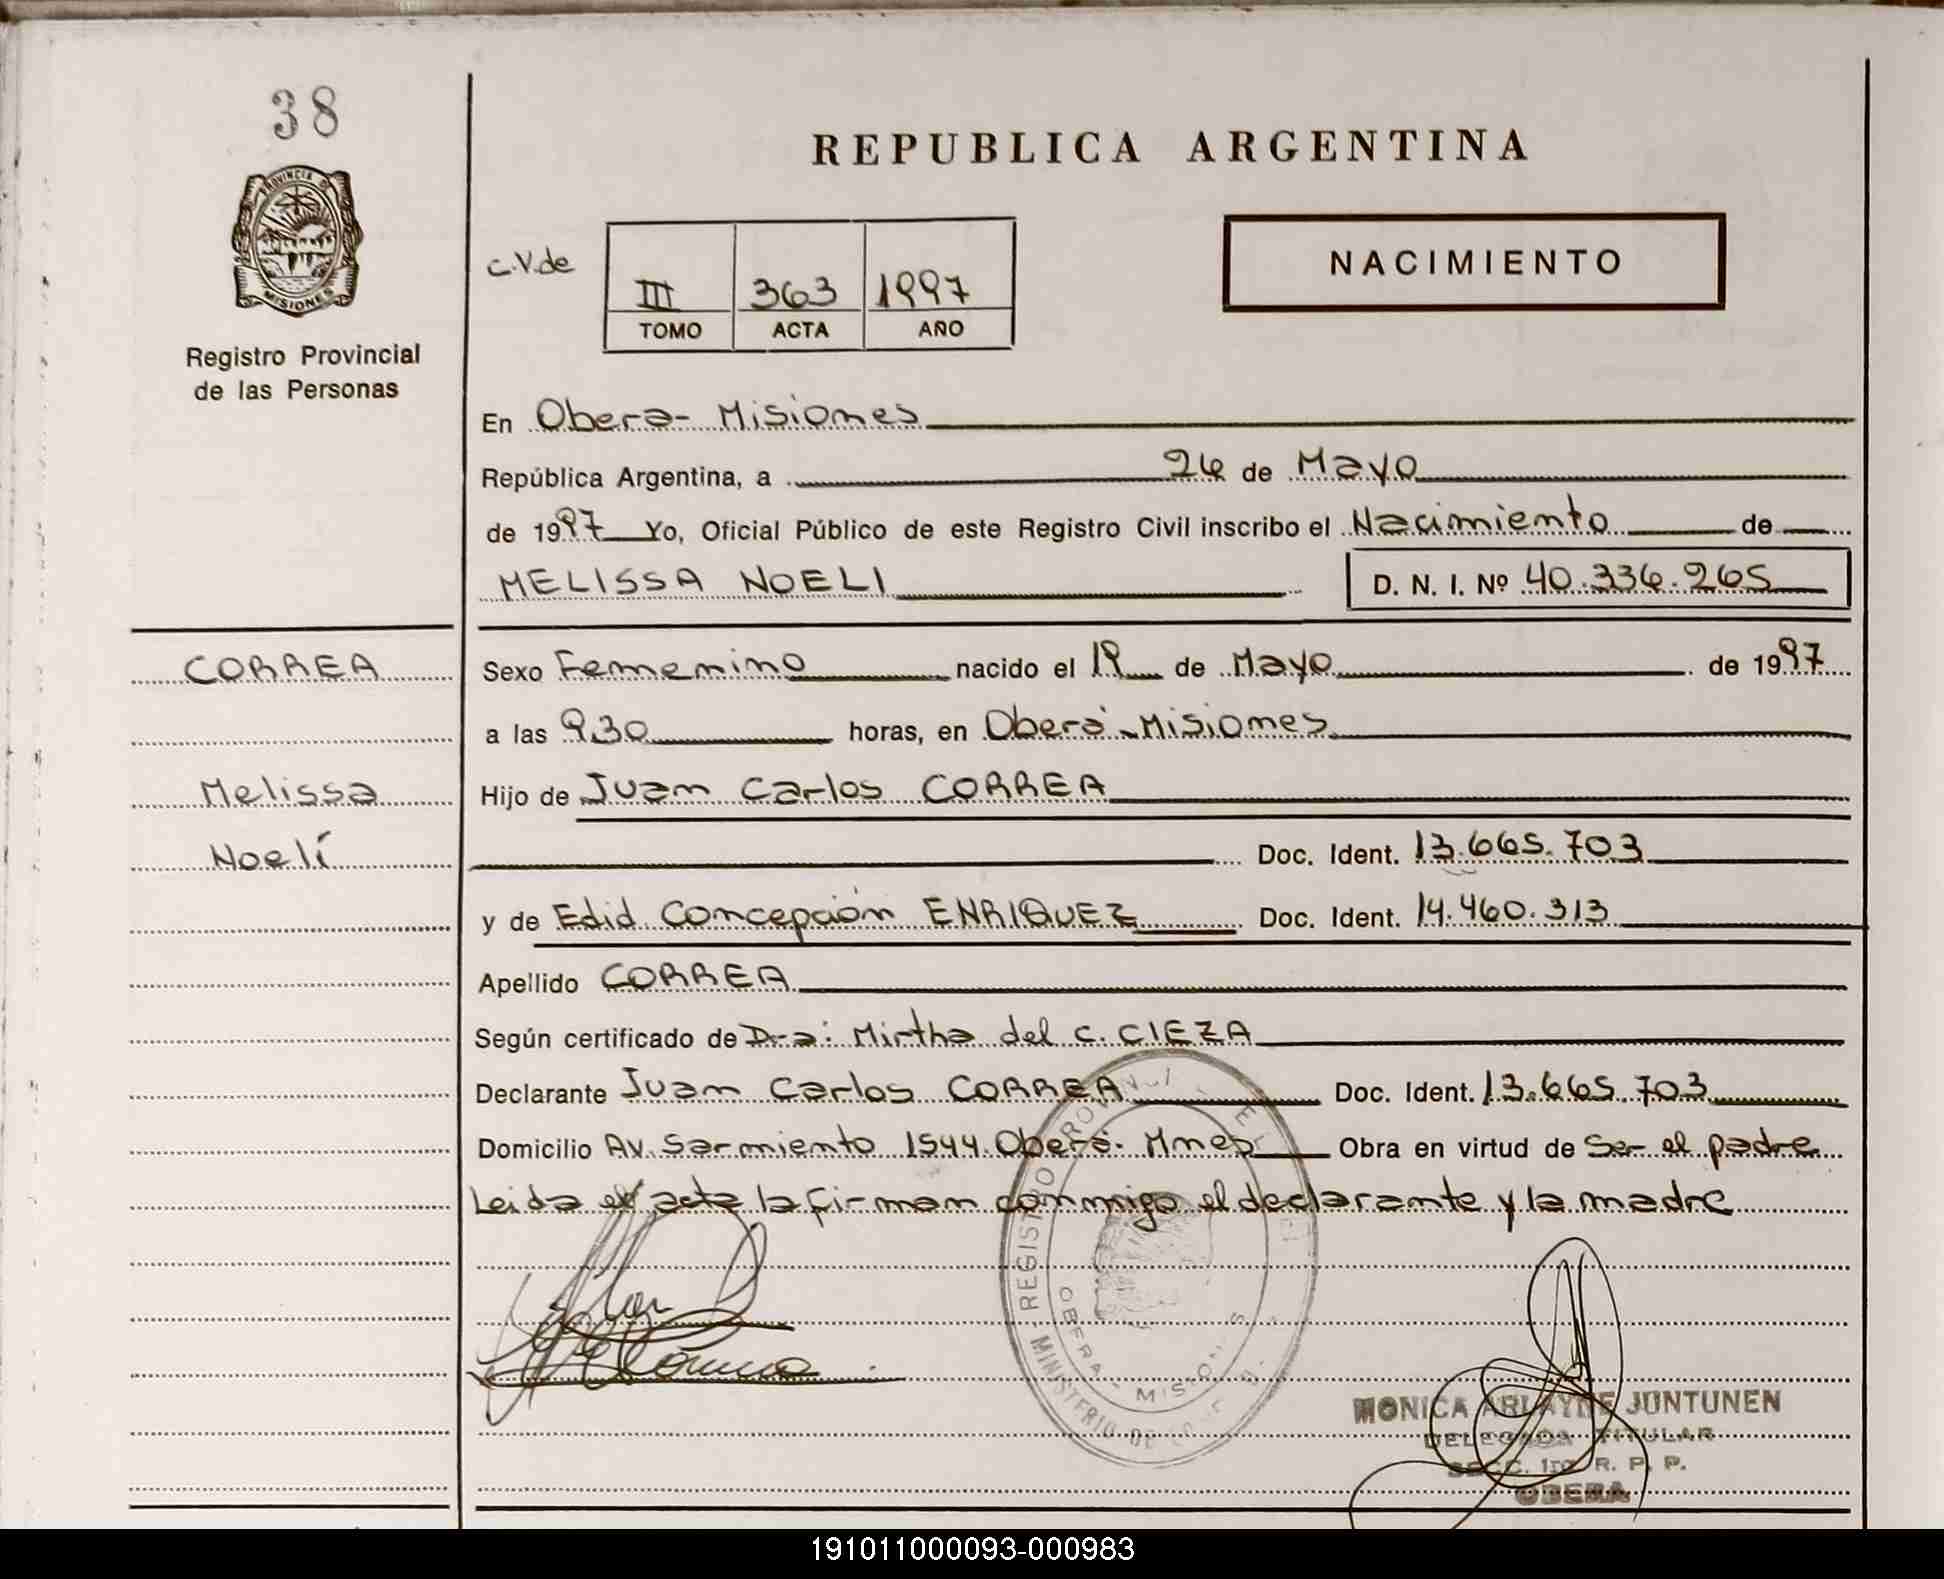 38
REPUBLICA ARGENTINA
PROVINCIA DE
MISIONES
Registro Provincial
de las Personas
C.V.de
III 363 1997
TOMO ACTA AÑO
NACIMIENTO
En Obera- Misiones
República Argentina, a 26 de Mayo
de 1997 Yo, Oficial Público de este Registro Civil inscribo el Nacimiento de
MELISSA NOELI D. N. I. Nº 40.336.265
CORREA Sexo Femenino nacido el 19 de Mayo de 1997
a las 9.30 horas, en Oberá-Misiones
Melissa Hijo de Juan Carlos CORREA
Noelí Doc. Ident. 13.665.703
y de Edid Concepción ENRIQUEZ Doc. Ident. 14.460.313
Apellido CORREA
Según certificado de Dra: Mirtha del C. CIEZA
Declarante Juan Carlos CORREA Doc. Ident. 13.665.703
Domicilio Av. Sarmiento 1544. Oberá. Mnes Obra en virtud de Ser el padre
Leida el acta la firman conmigo el declarante y la madre
REGISTRO
MINISTERIO DE
OBERA - MISIONES
MONICA ARLAYNE JUNTUNEN
DELEGADA TITULAR
SECC. 1ra. R. P. P.
OBERA
191011000093-000983